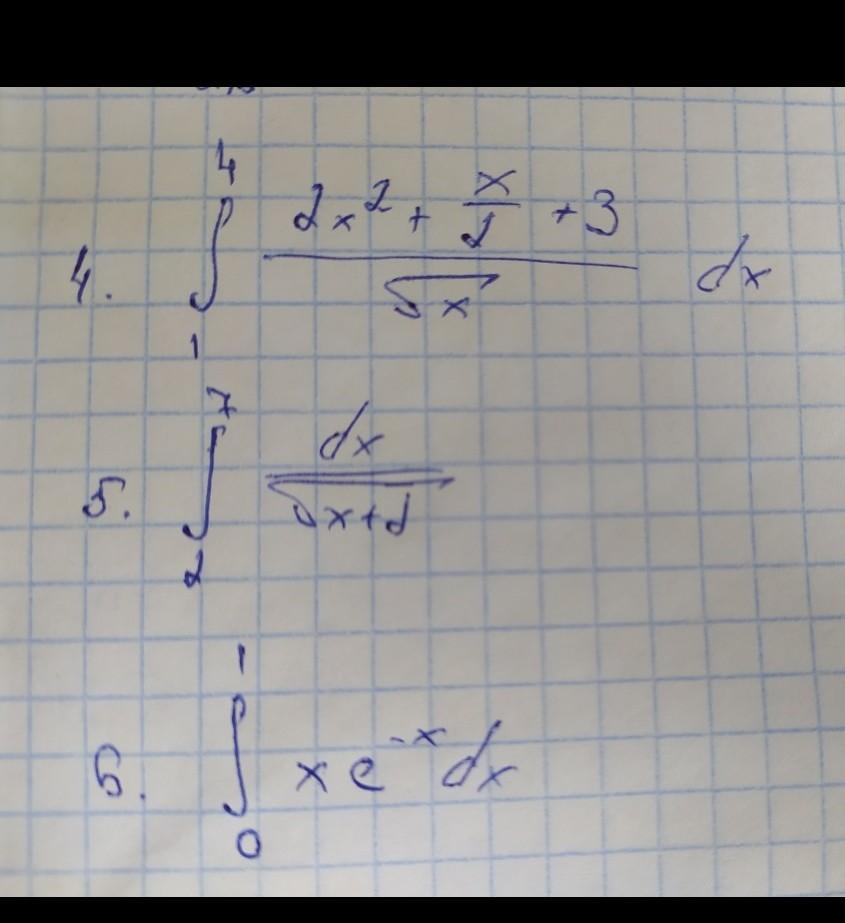 4. ∫₁⁴ (2x² + x/2 + 3)/√x dx
5. ∫₂⁷ dx/√(x+2)
6. ∫₀¹ xe⁻ˣdx